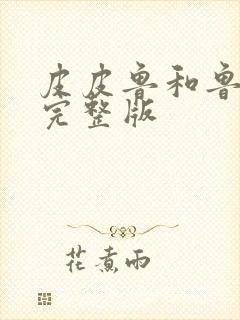 皮皮鲁和鲁
完整版
花煮雨